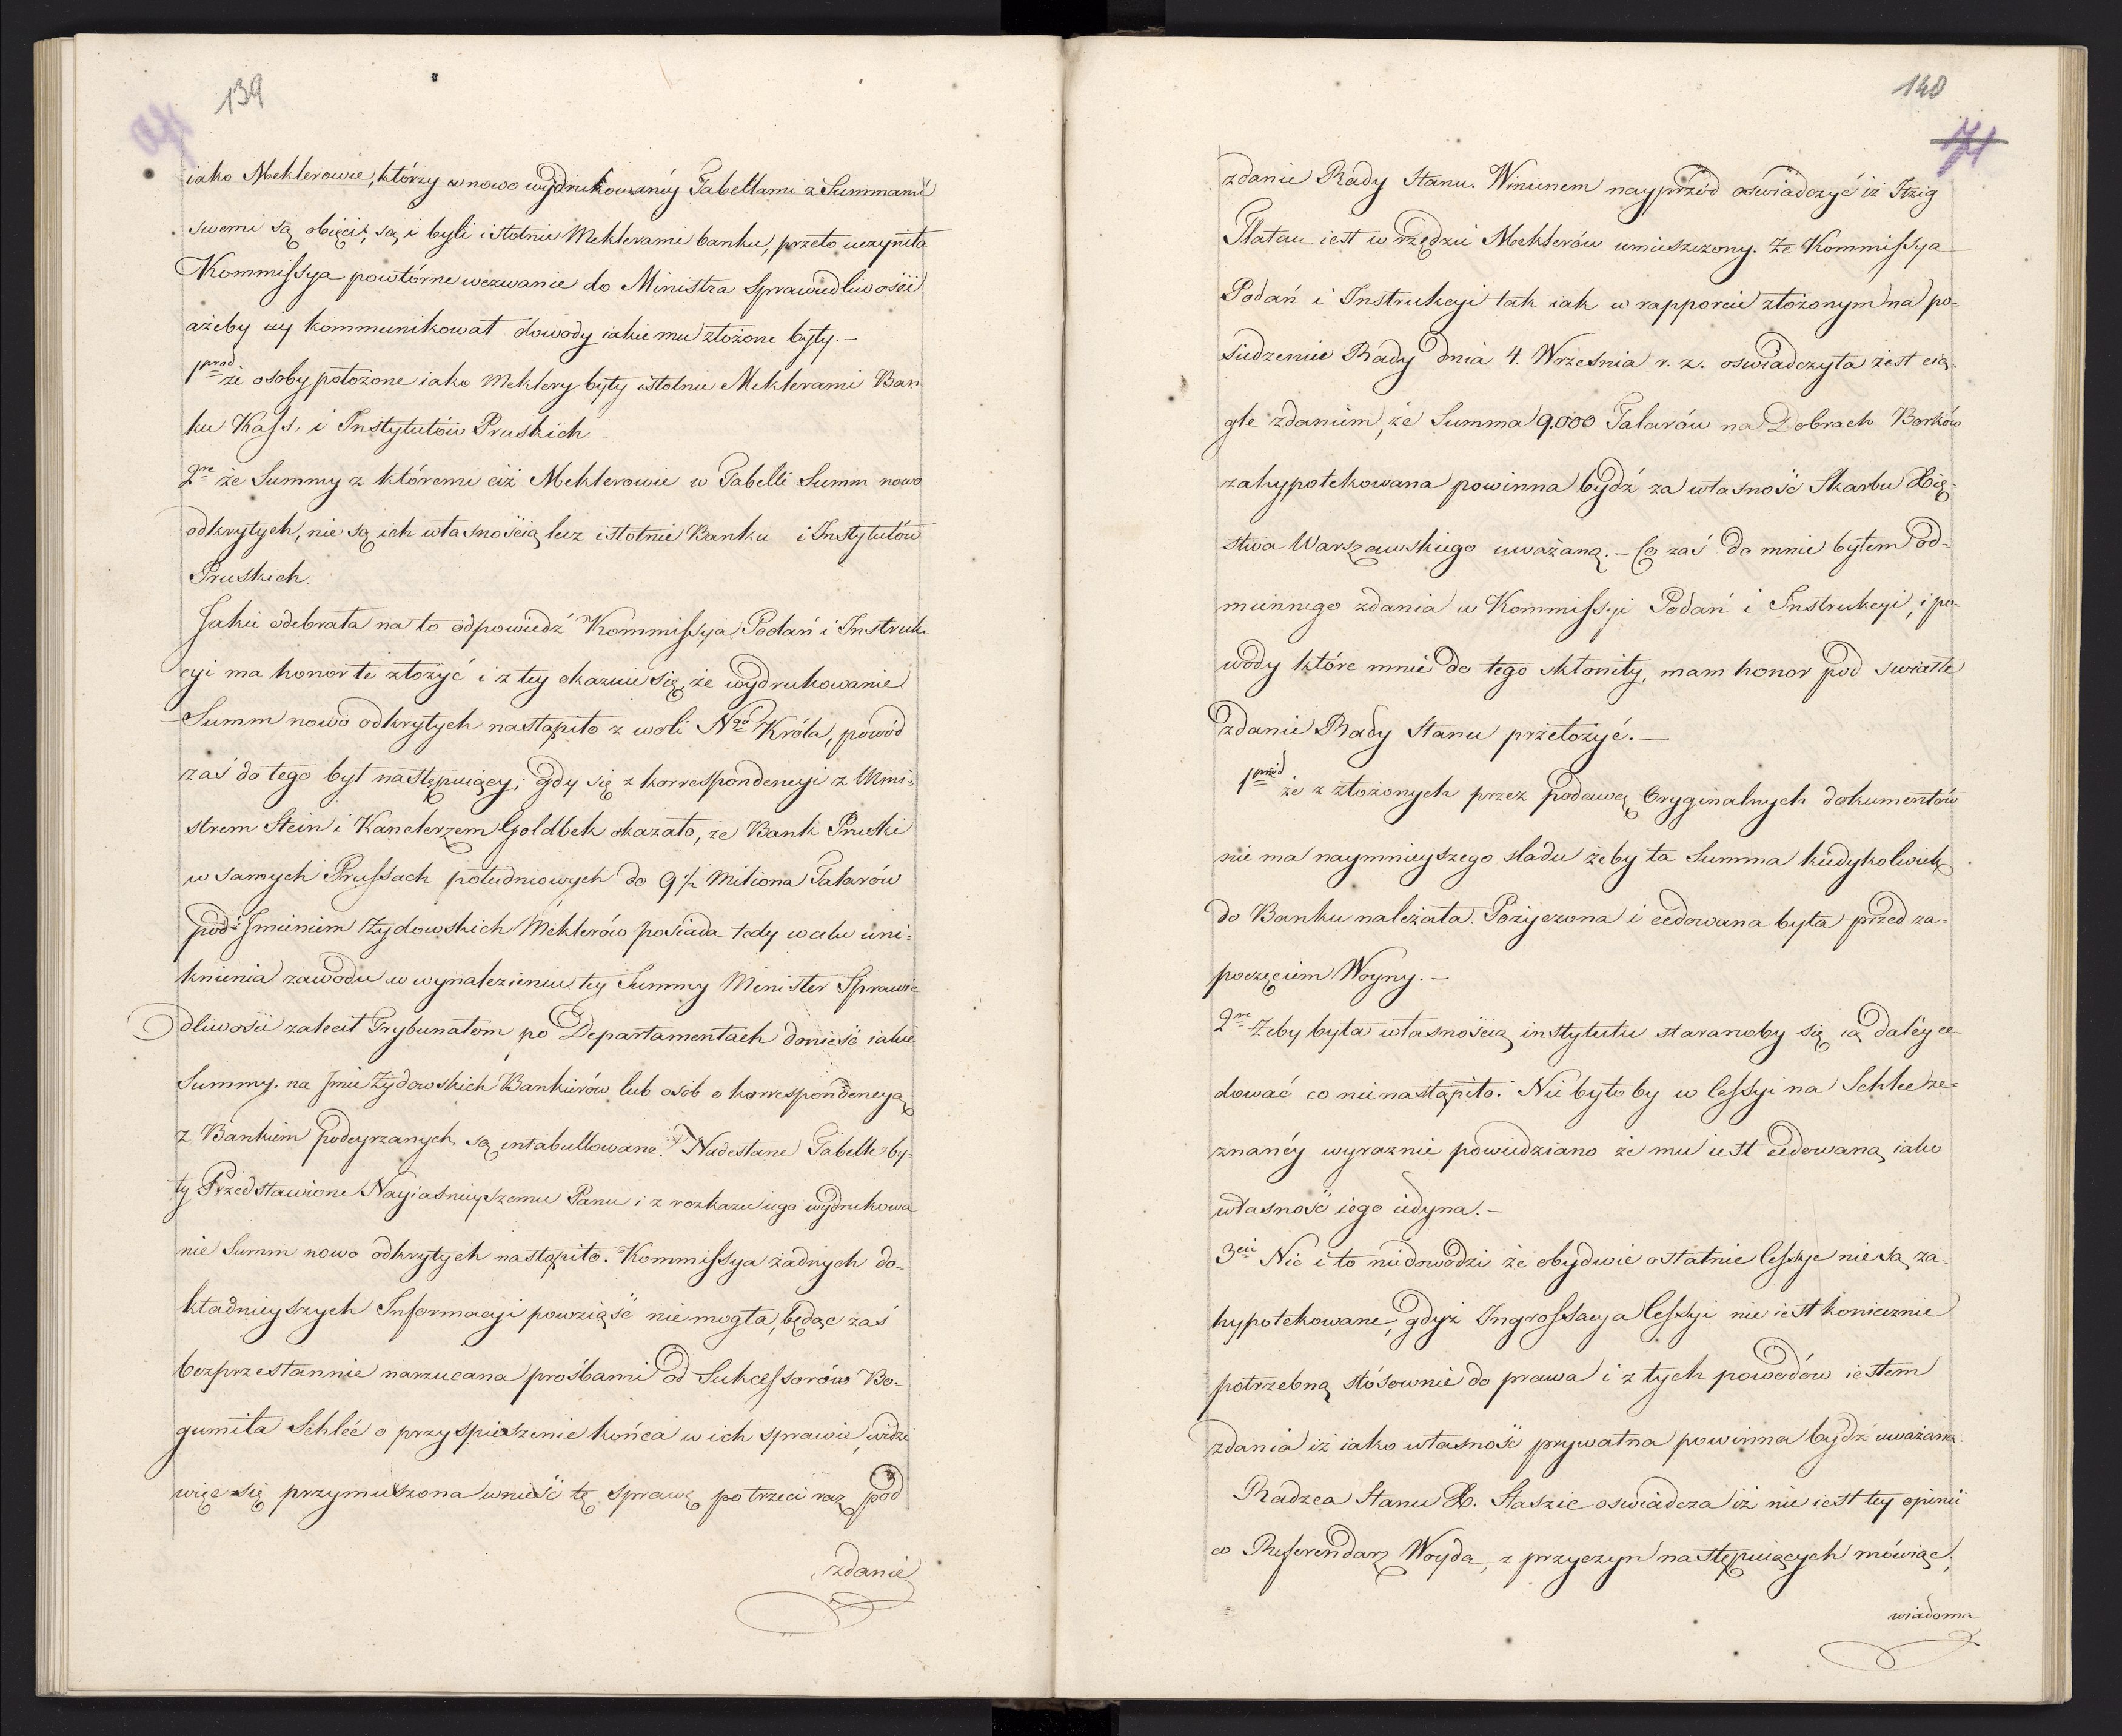 139
iako Meklerowie, którzy w nowo wydrukowanéy Tabellami z Summami
swemi są obięci, są i byli istotnie Meklerami banku, przeto uczyniła
Kommissya powtórne wezwanie do Ministra Sprawiedliwości
ażeby iéy kommunikował dowody iakie mu złożone były. —
1mo prod że osoby położone iako Meklery były istotnie Meklerami Ban
ku Kass, i Instytutów Pruskich.
2re że Summy z któremi ciż Meklerowie w Tabelli Summ nowo
odkrytych, nie są ich własnością lecz istotnie Banku i Instytutów
Pruskich.
Jakie odebrała na to odpowiedź Kommissya Podań i Instruk
cyi ma honor te złożyć i z tey okazuie się, że wydrukowanie
Summ nowo odkrytych nastąpiło z woli Ngo Króla, powód
zaś do tego był następuiący; gdy się z korrespondencyi z Mini:
strem Stein i Kanclerzem Goldbek okazało, że Bank Pruski
w samych Prussach południowych do 9 ½ Miliona Talarów
pod Imieniem Żydowskich Meklerów posiada tedy w celu uni:
knienia zawodu w wynalezieniu téy Summy Minister Sprawie
dliwości zalecił Trybunałom po Departamentach donieść iakie
Summy na Imie Żydowskich Bankierów lub osób o korrespondencyą
z Bankiem podeyrzanych są intabullowane. Nadesłane Tabelle by:
ły Przedstawione Nayiaśnieyszemu Panu i z rozkazu iego wydrukowa
nie Summ nowo odkrytych nastąpiło. Kommissya żadnych do-
kładnieyszych Informacyi powziąść nie mogła, będąc zaś
bezprzestannie narzucana prośbami od Sukcessorów Bo-
gumiła Schleé o przyspieszenie końca w ich sprawie, widzi
więc się przymuszona wnieść tę sprawę po trzeci raz pod
zdanie
140
71
zdanie Rady Stanu. Winienem nayprzód oświadczyć iż Itzig
Flatau iest w rzędzie Meklerów umieszczony. Że Kommissya
Podań i Instrukcyi tak iak w rapporcie złożonym na po-
siedzenie Rady dnia 4. Września r. z. oświadczyła iest cią-
gle zdaniem, że Summa 9.000 Talarów na Dobrach Borków
zahypotekowana powinna bydź za własność Skarbu Xię-
stwa Warszawskiego uważaną. — Co zaś do mnie byłem od-
miennego zdania w Kommissyi Podań i Instrukcyi, i po-
wody które mnie do tego skłoniły, mam honor pod swiatłe
zdanie Rady Stanu przełożyć. —
1mo przód że z złożonych przez podawcę Oryginalnych dokumentów
nie ma naymnieyszego sladu żeby ta Summa kiedykolwiek
do Banku należała. Pożyczona i cedowana była przed za-
poczęciem Woyny. —
2re Żeby była własnością instytutu staranoby się ią daléy ce-
dować co nie nastąpiło. Nie byłoby w Cessyi na Schlee ze-
znanéy wyraznie powiedziano że mu iest cedowaną iako
własność iego iedyna. —
3cie Nic i to niedowodzi że obydwie ostatnie Cessye nie są za-
hypotekowane, gdyż Ingrossacya Cessyi nie iest koniecznie
potrzebną stósownie do prawa i z tych powodów iestem
zdania iż iako własność prywatna powinna bydź uważana.
Radzca Stanu X. Staszic oswiadcza iż nie iest téy opinii
co Referendarz Woyda, z przyczyn następuiących mówiąc,
wiadoma